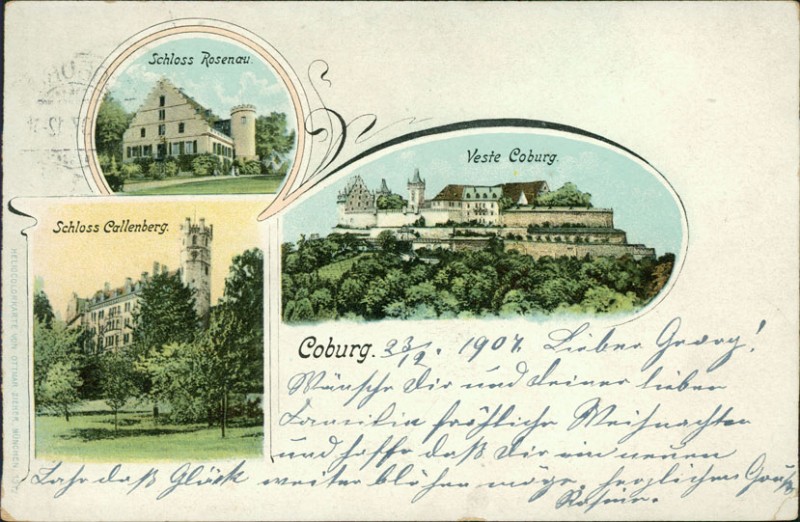 Schloss Rosenau.
Veste Coburg.
Schloss Callenberg.
HELIOCOLORKARTE VON OTTMAR ZIEHER, MÜNCHEN
Coburg. 23/12. 1907. Lieber Georg!
Wünsche Dir und deiner lieben
Familie fröhliche Weihnachten
und hoffe daß Dir ein neuen
Jahr daß Glück weiter blühen möge. herzlichen Gruß